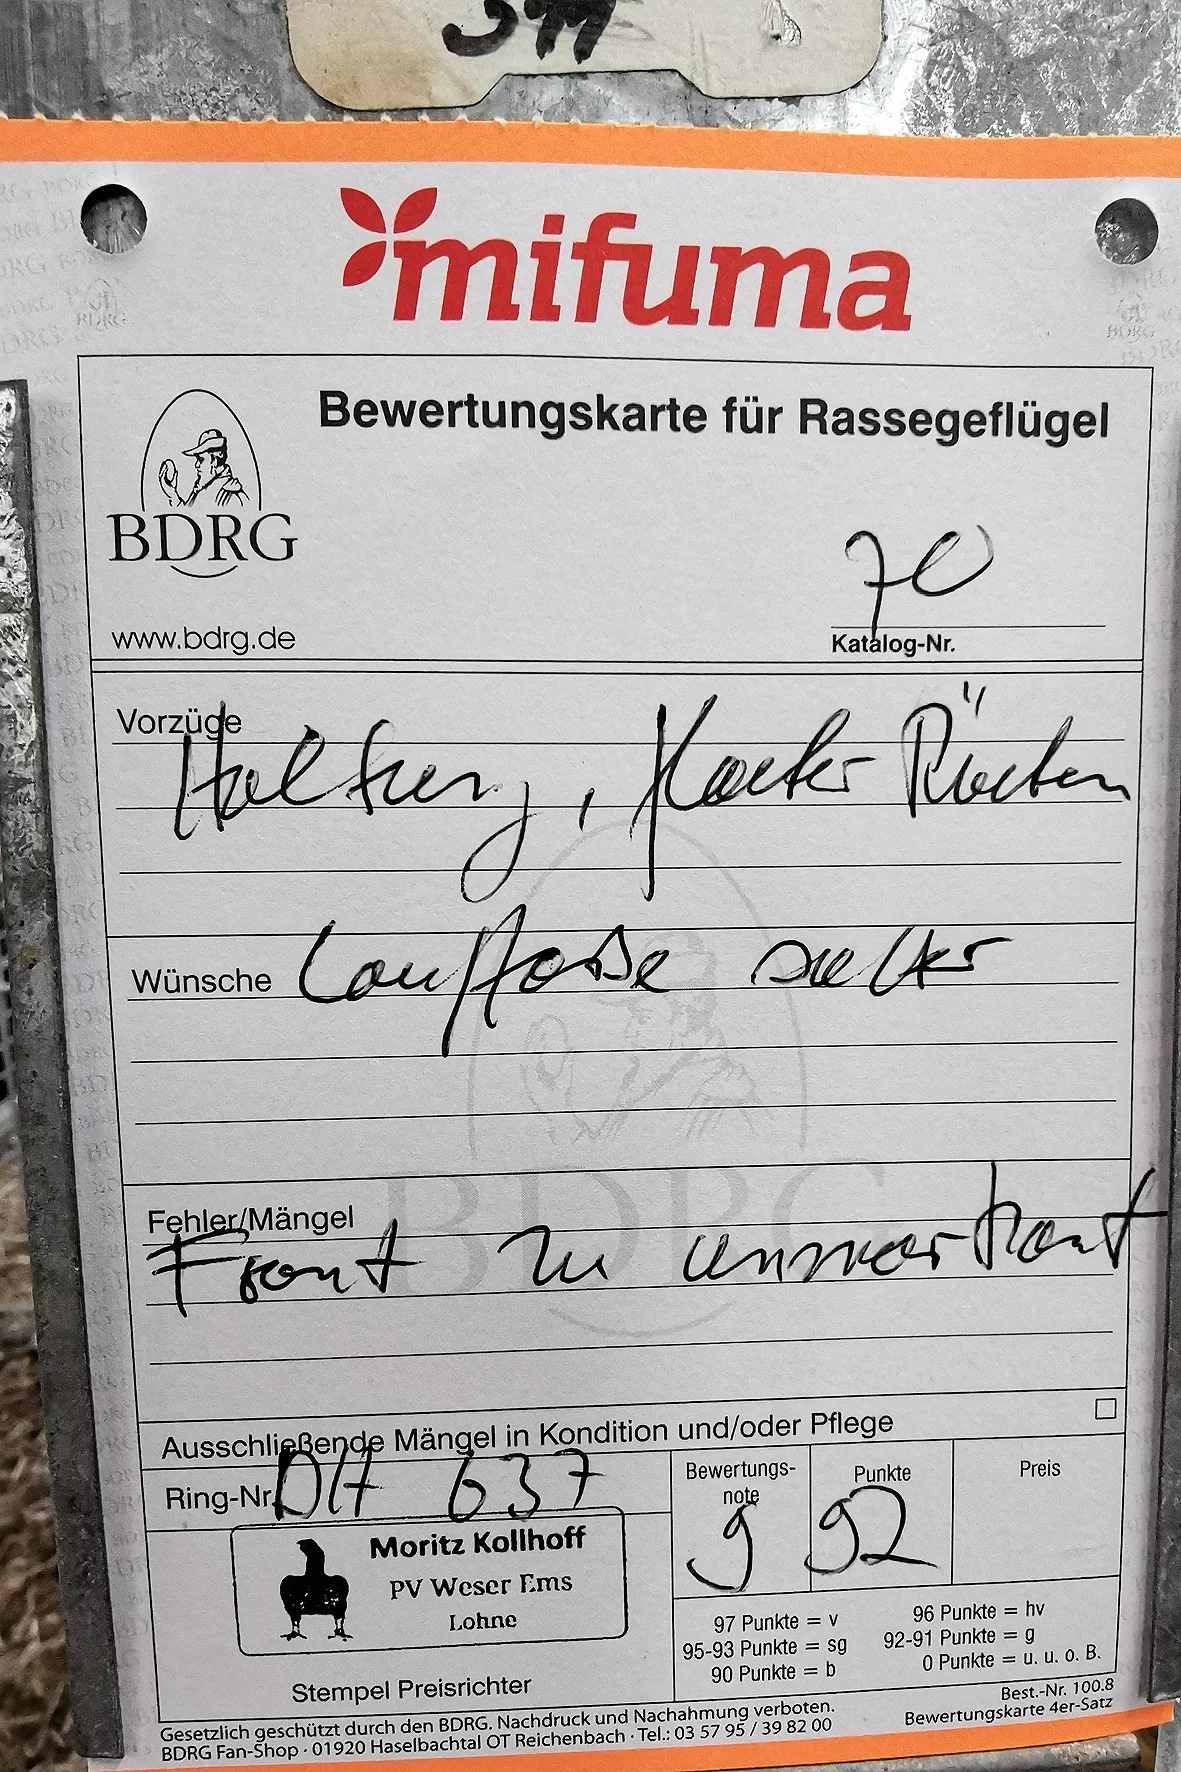 mifuma
BDRG
Bewertungskarte für Rassegeflügel
70
www.bdrg.de
Katalog-Nr.
Vorzüge
Haltung, Rücken
Wünsche
Fehler/Mängel
Front zu unmarkant
Ausschließende Mängel in Kondition und/oder Pflege
Ring-Nr. 637
Bewertungs-
note
g
Punkte
92
Preis
Moritz Kollhoff
PV Weser Ems
Lohne
Stempel Preisrichter
97 Punkte = v
96 Punkte = hv
95-93 Punkte = sg
92-91 Punkte = g
90 Punkte = b
0 Punkte = u. u. o. B.
Gesetzlich geschützt durch den BDRG. Nachdruck und Nachahmung verboten.
BDRG Fan-Shop · 01920 Haselbachtal OT Reichenbach · Tel.: 03 57 95 / 39 82 00
Best.-Nr. 100.8
Bewertungskarte 4er-Satz